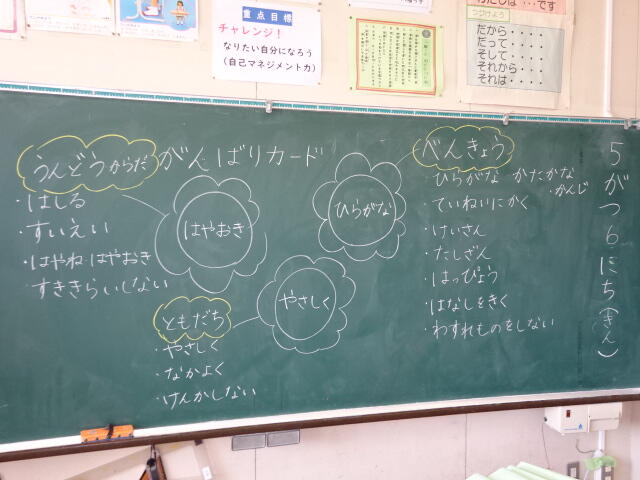 重点目標
チャレンジ!
なりたい自分になろう
(自己マネジメント力)
つなげよう
だから・・・・
だって・・・・
そして・・・・
それから・・・
それは・・・・
5がつ6にち(きん)
がんばりカード
うんどうからだ
・はしる
・すいえい
・はやね はやおき
・すききらいしない
はやおき
ひらがな
やさしく
ともだち
・やさしく
・なかよく
・けんかしない
べんきょう
・ひらがな カタカナ
・かんじ
・ていねいにかく
・けいさん
・たしざん
・はっぴょう
・はなしをきく
・わすれものをしない